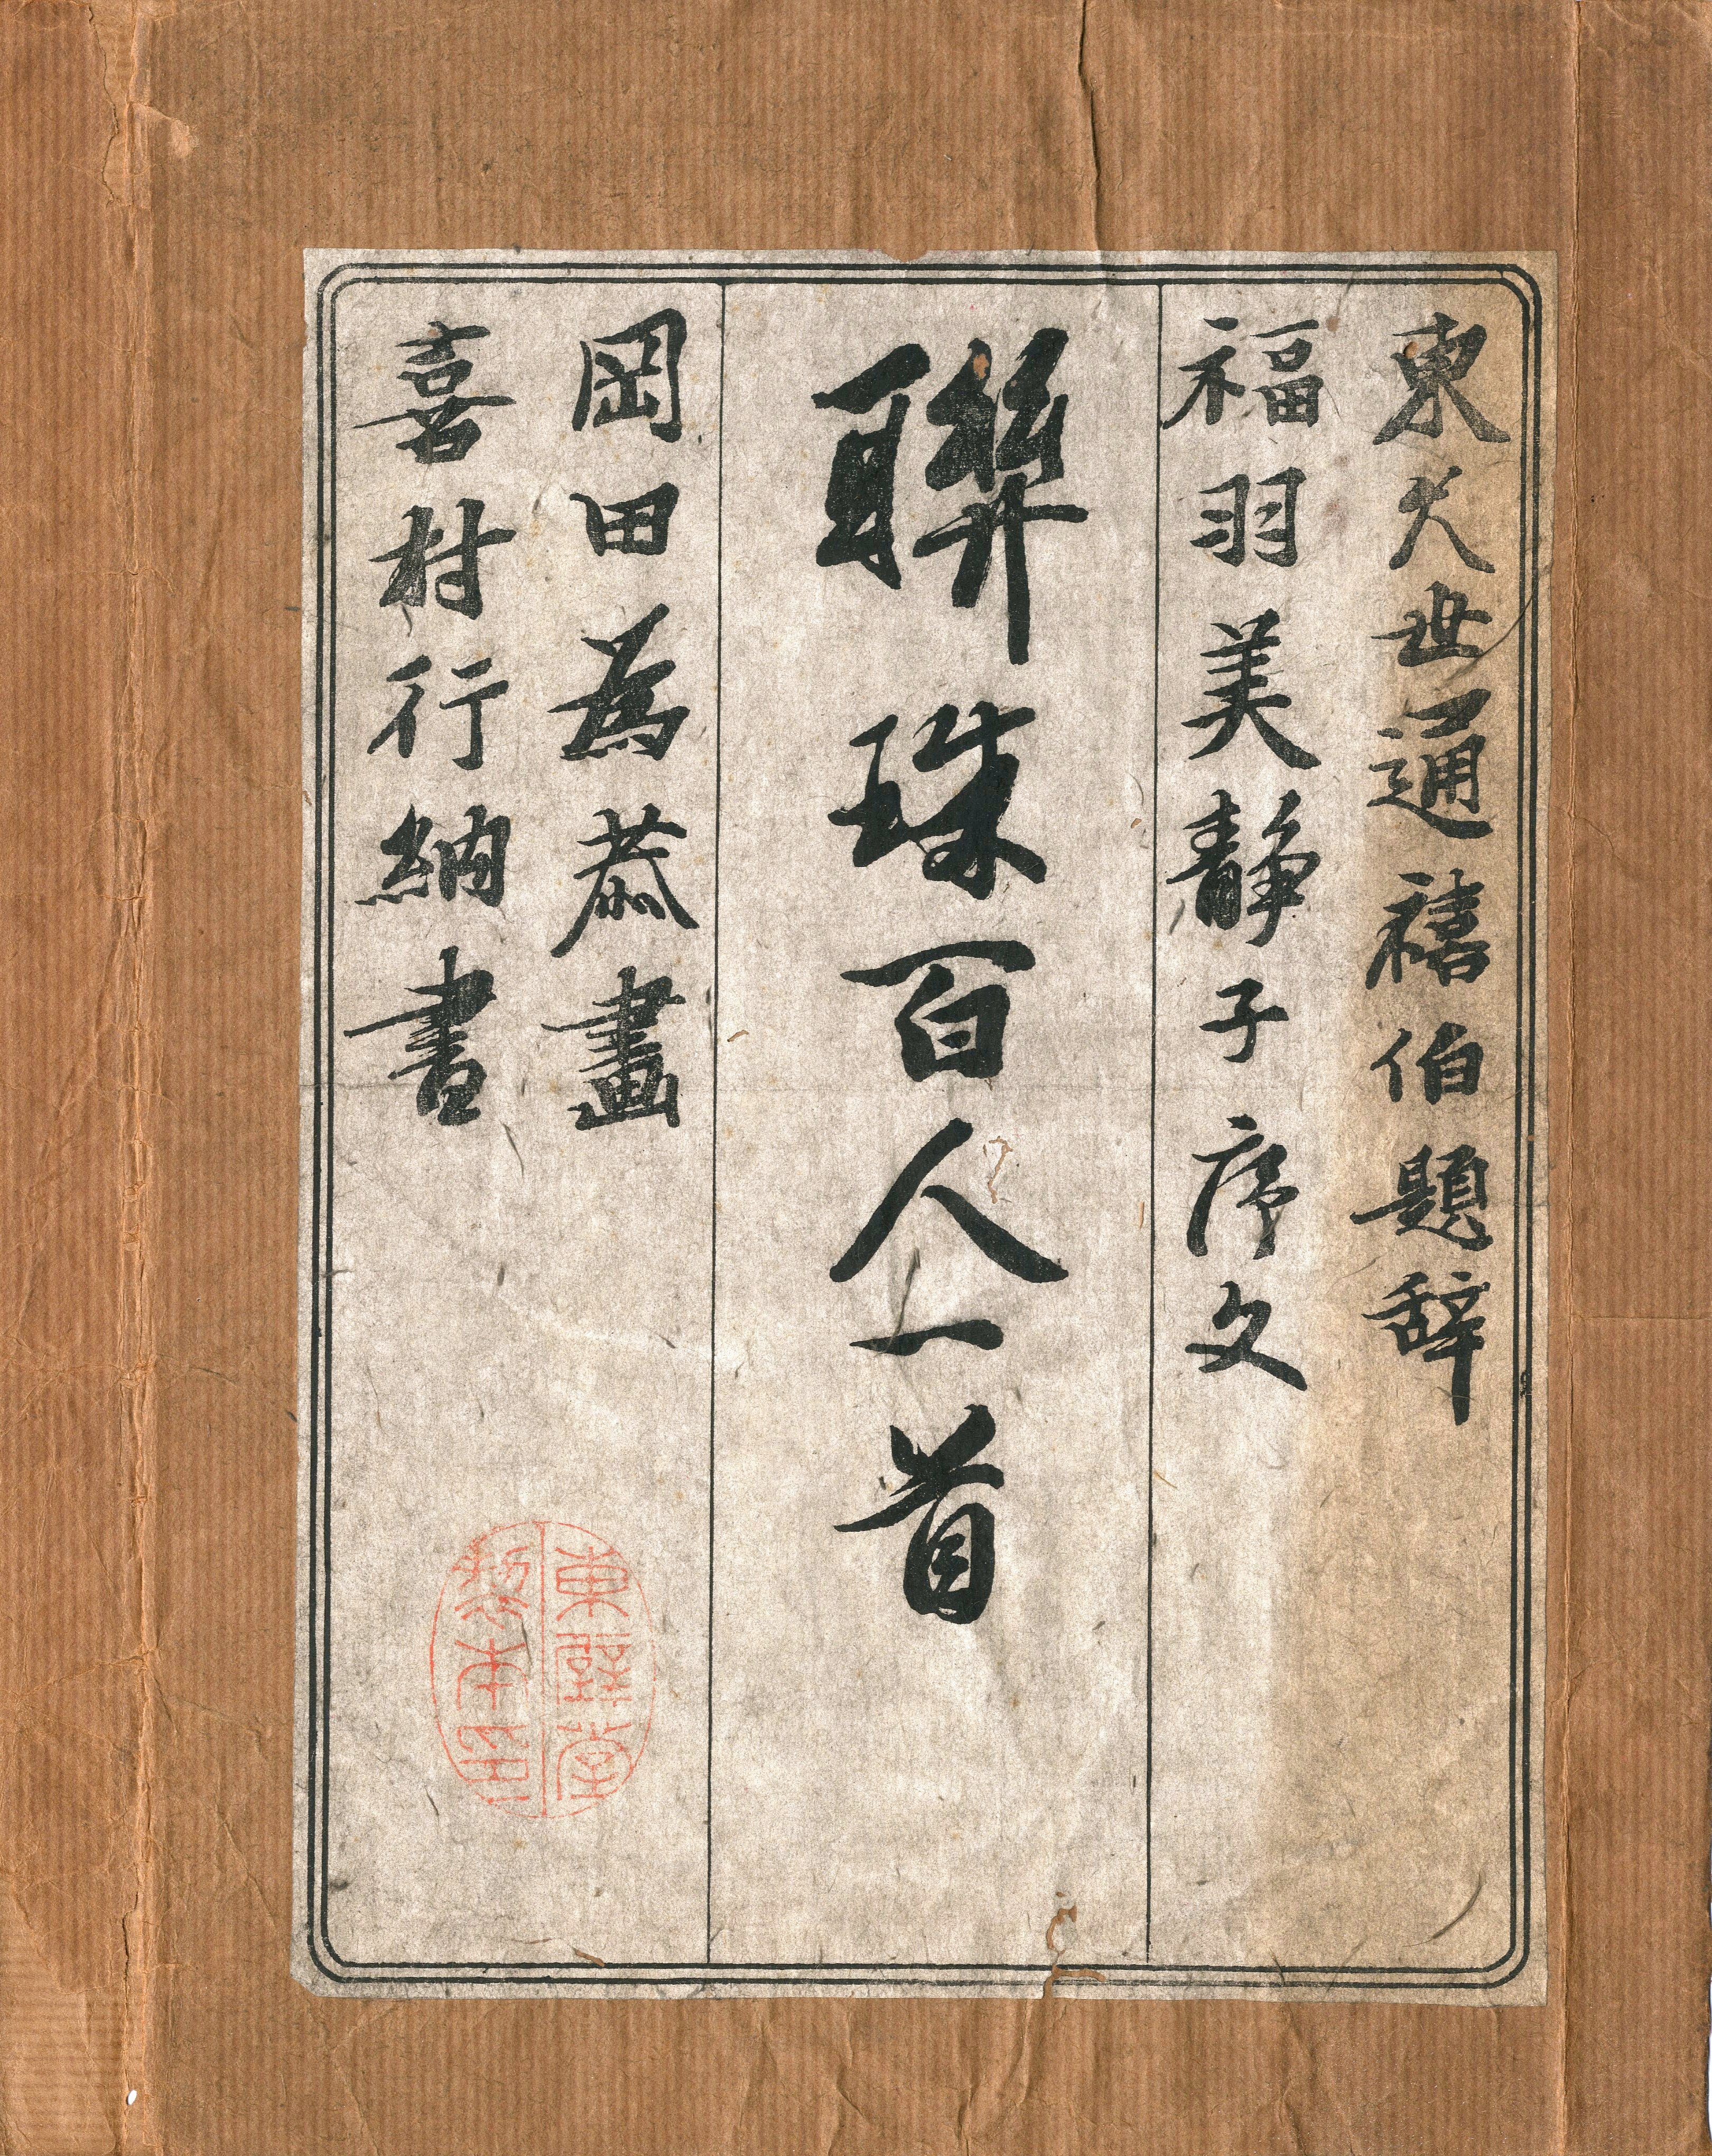 東久世通禧伯題辞
福羽美静子序文
聯珠百人一首
岡田為恭畫
喜村行納書
東壁堂
製本印